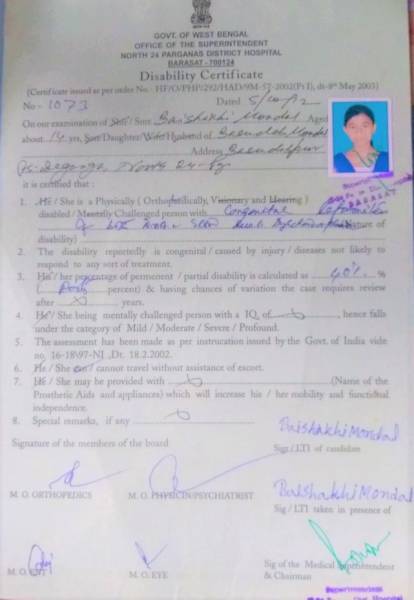 GOVT. OF WEST BENGAL
OFFICE OF THE SUPERINTENDENT
NORTH 24 PARGANAS DISTRICT HOSPITAL
BARASAT - 700124
Disability Certificate
(Certificate issued as per order No.- HF/O/PHP/292/HAD/9M-57-2002(Pt I), dt-8th May 2003)
No - 1073 Dated 5/10/12
On our examination of Sri / Smt. Baishakhi Mondal Aged
about 14 yrs, Son/Daughter/Wife/Husband of Mondal
Address
24-
it is certified that :
1. He / She is a Physically ( Orthopedically, Visionary and Hearing )
disabled / Mentally Challenged person with Congenital
of left (Nature of
disability)
2. The disability reportedly is congenital / caused by injury / diseases not likely to
respond to any sort of treatment.
3. His / her percentage of permenent / partial disability is calculated as 40% %
( Forty percent) & having chances of variation the case requires review
after x years.
4. He / She being mentally challenged person with a IQ of x, hence falls
under the category of Mild / Moderate / Severe / Profound.
5. The assessment has been made as per instrucation issued by the Govt. of India vide
no. 16-18\97-NI ,Dt. 18.2.2002.
6. He / She can / cannot travel without assistance of escort.
7. He / She may be provided with x (Name of the
Prosthetic Aids and appliances) which will increase his / her mobility and functional
independence.
8. Special remarks, if any x
Signature of the members of the board
Baishakhi Mondal
Sig / LTI of candidate
M. O. ORTHOPEDICS
M. O. PHYSICIN/PSYCHIATRIST
Baishakhi Mondal
Sig / LTI taken in presence of
M. O. ENT
M. O. EYE
Sig of the Medical Superintendent
& Chairman
Superintendent
Hospital
BARASAT